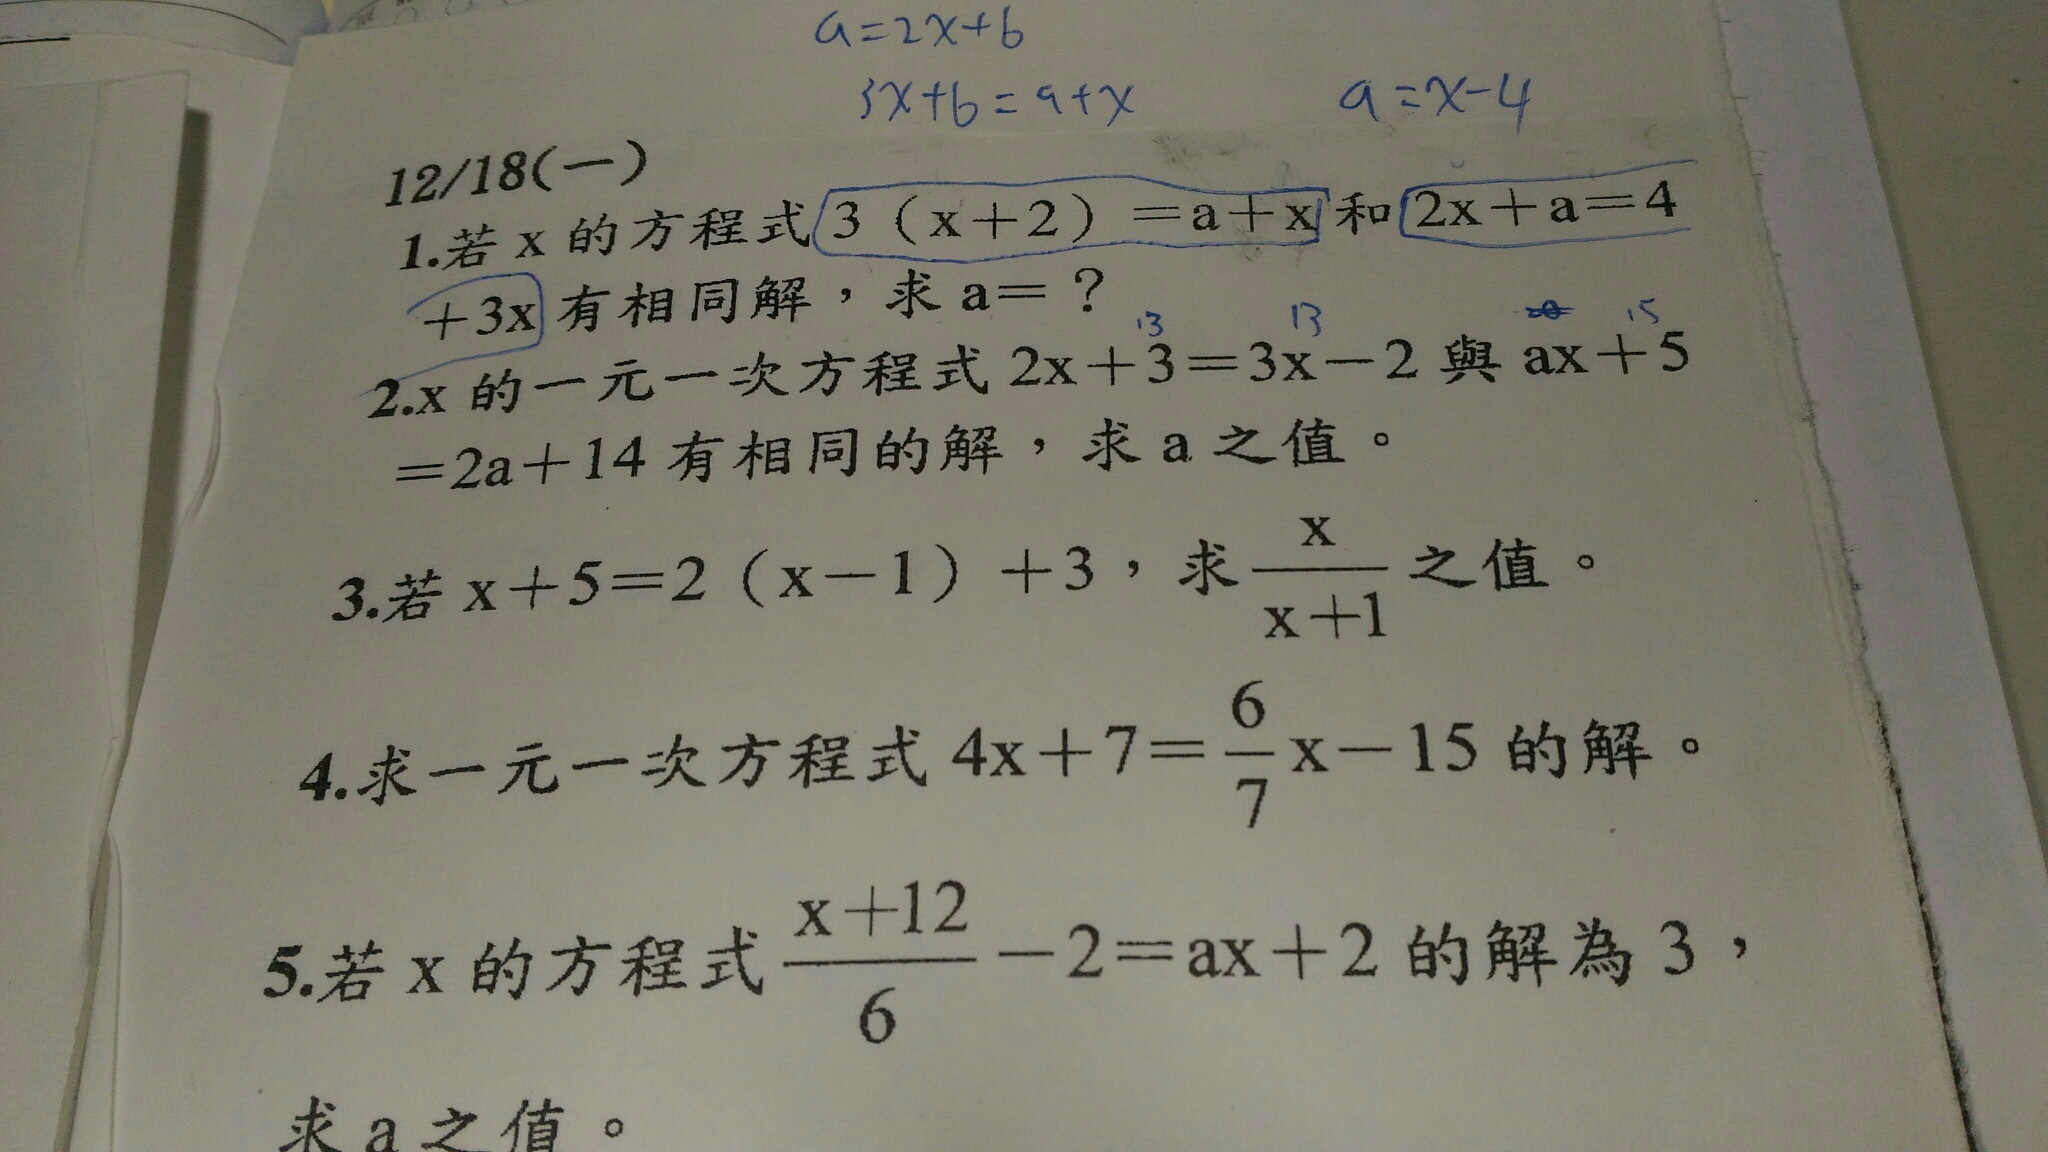 a=2x+6
3x+6=a+x
a=x-4
12/18(一)
1.若 x 的方程式 3（x+2）=a+x 和 2x+a=4
+3x 有相同解，求 a=？
13 13 15
2.x 的一元一次方程式 2x+3=3x-2 與 ax+5
=2a+14 有相同的解，求 a 之值。
3.若 x+5=2（x-1）+3，求 x/(x+1) 之值。
4.求一元一次方程式 4x+7=6/7 x-15 的解。
5.若 x 的方程式 (x+12)/6 -2=ax+2 的解為 3，
求 a 之值。